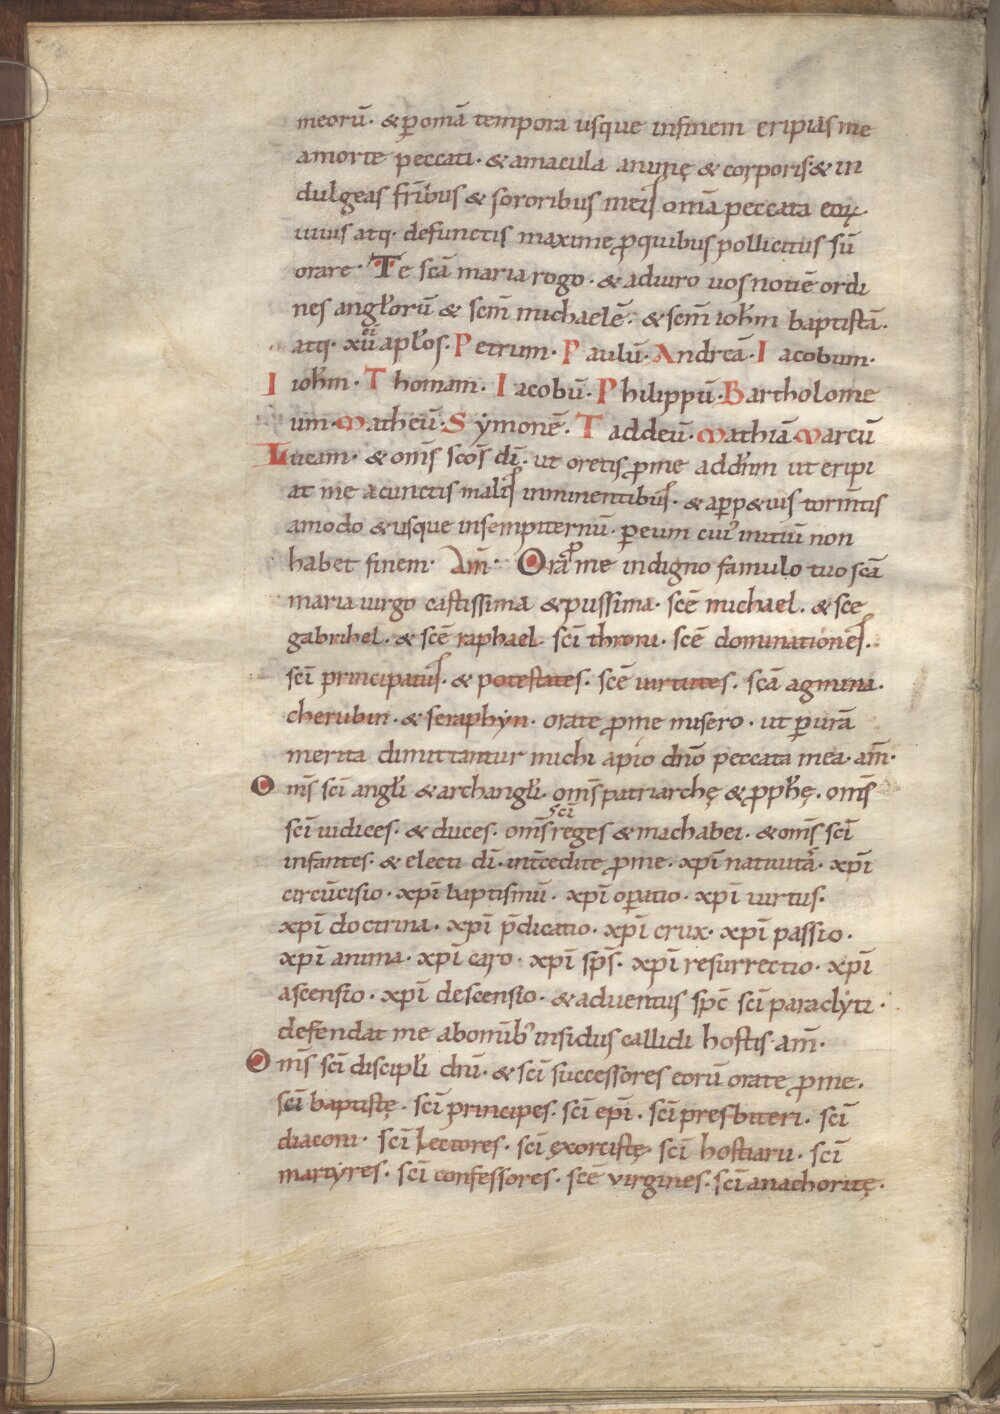 meorū· & ꝑ om̄a tempora usque infinem eripias me
amorte peccati· & amacula animę & corporis· & in
dulgeas fr̄ibus & sororibus meis om̄a peccata eoꝝ
uiuis atq· defunctis maxime ꝓquibus pollicitus sū
orare· Te sc̄a maria rogo· & adiuro uos nouē ordi
nes angl̄orū & sc̄m michaelē· & sc̄m ioh̄m baptistā·
atq· xii apl̄os· Petrum· Paulū· Andreā· Iacobum·
Ioh̄m· Thomam· Iacobū· Philippū· Bartholome
um· Matheū· Symonē· Taddeū· Mathiā· Marcū
Lucam· & om̄s sc̄os dī· ut oretis ꝓme add̄nm ut eripi
at me acunctis malis inminentibus· & aꝑp&uis torm̄tis
amodo & usque insempiternū· ꝑeum cui' initiū non
habet finem· Am̄· Orā ꝓ me indigno famulo tuo sc̄a
maria uirgo castissima & piissima· sc̄e michael· & sc̄e
gabrihel· & sc̄e raphael· sc̄i throni· sc̄e dominationes·
sc̄i principatus· & potestates· sc̄e uirtutes· sc̄a agmina·
cherubin· & seraphyn· orate ꝓme misero· ut ꝑ ur̄a
merita dimittantur michi apio dn̄o peccata mea· am̄·
Om̄s sc̄i angl̄i & archangl̄i· om̄s patriarchę & ꝓph̄ę· om̄s
sc̄i iudices· & duces· om̄s sc̄i reges & machabei· & om̄s sc̄i
infantes· & electi dī· int̄cedite ꝓme· xp̄i natiuitā· xp̄i
circūcisio· xp̄i baptismū· xp̄i oꝑatio· xp̄i uirtus·
xp̄i doctrina· xp̄i p̄dicatio· xp̄i crux· xp̄i passio·
xp̄i anima· xp̄i caro· xp̄i sp̄s· xp̄i resurrectio· xp̄i
ascensio· xp̄i descensio· & aduentus sp̄c sc̄i paraclyti·
defendat me abom̄ib' insidiis callidi hostis· am̄·
Om̄s sc̄i discipl̄i dn̄i· & sc̄i successores eorū orate ꝓme·
sc̄i baptistę· sc̄i principes· sc̄i ep̄i· sc̄i presbiteri· sc̄i
diaconi· sc̄i Lectores· sc̄i ęxorcistę· sc̄i hostiarii· sc̄i
martyres· sc̄i confessores· sc̄e virgines· sc̄i anachoritę·